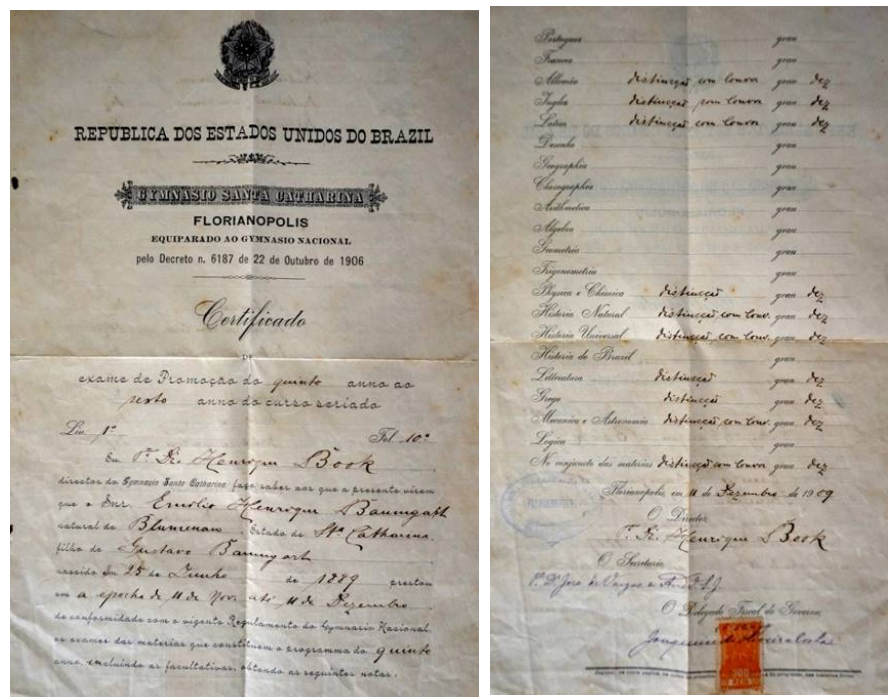 REPUBLICA DOS ESTADOS UNIDOS DO BRAZIL
GYMNASIO SANTA CATHARINA
FLORIANOPOLIS
EQUIPARADO AO GYMNASIO NACIONAL
pelo Decreto n. 6187 de 22 de Outubro de 1906
Certificado
DE
exame de Promoção do quinto anno ao
sexto anno do curso seriado
Liv. 1º Fol. 10º
Eu P. Dr. Henrique Book
director do Gymnasio Santa Catharina faço saber aos que a presente virem
que o Snr. Emilio Henrique Baumgart
natural de Blumenau Estado de Sta Catharina
filho de Gustavo Baumgart
nascido em 25 de Junho de 1889 prestou
em a epocha de 11 de Nov. até 11 de Dezembro
de conformidade com o vigente Regulamento do Gymnasio Nacional
os exames das materias que constituem o programma do quinto
anno, incluindo as facultativas, obtendo as seguintes notas:
Portuguez grau
Francez grau
Allemão distincção com louvor grau dez
Inglez distincção com louvor grau dez
Latim distincção com louvor grau dez
Desenho grau
Geographia grau
Chorographia grau
Arithmetica grau
Algebra grau
Geometria grau
Trigonometria grau
Physica e Chimica distincção grau dez
Historia Natural distincção com louv. grau dez
Historia Universal distincção com louv. grau dez
Historia do Brazil grau
Litteratura distincção grau dez
Grego distincção grau dez
Mecanica e Astronomia distincção com louv. grau dez
Logica grau
No conjuncto das materias distincção com louvor grau dez
Florianopolis, em 11 de Dezembro de 1909
O Director
P. Dr. Henrique Book
O Secretario
P. Dr José de
O Delegado Fiscal do Governo,
300